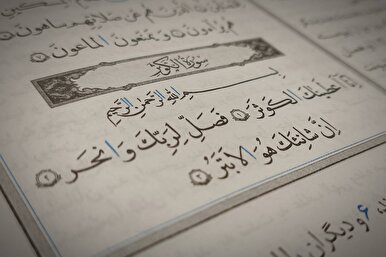 هُمْ عَن صَلَاتِهِمْ سَاهُونَ
هُمْ يُرَاءُونَ وَيَمْنَعُونَ الْمَاعُونَ
سُورَةُ الْكَوْثَرِ
بِسْمِ اللَّهِ الرَّحْمَنِ الرَّحِيمِ
عْطَيْنَاكَ الْكَوْثَرَ ١ فَصَلِّ لِرَبِّكَ وَانْحَرْ ٢
إِنَّ شَانِئَكَ هُوَ الْأَبْتَرُ ٣
۶ و دیگران